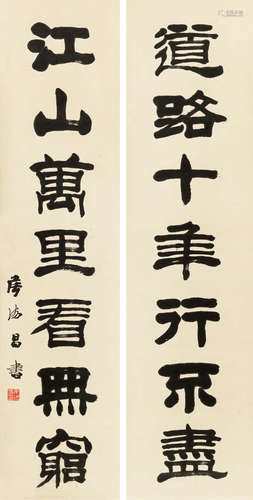 道路十年行不盡
江山萬里看無窮
昌書